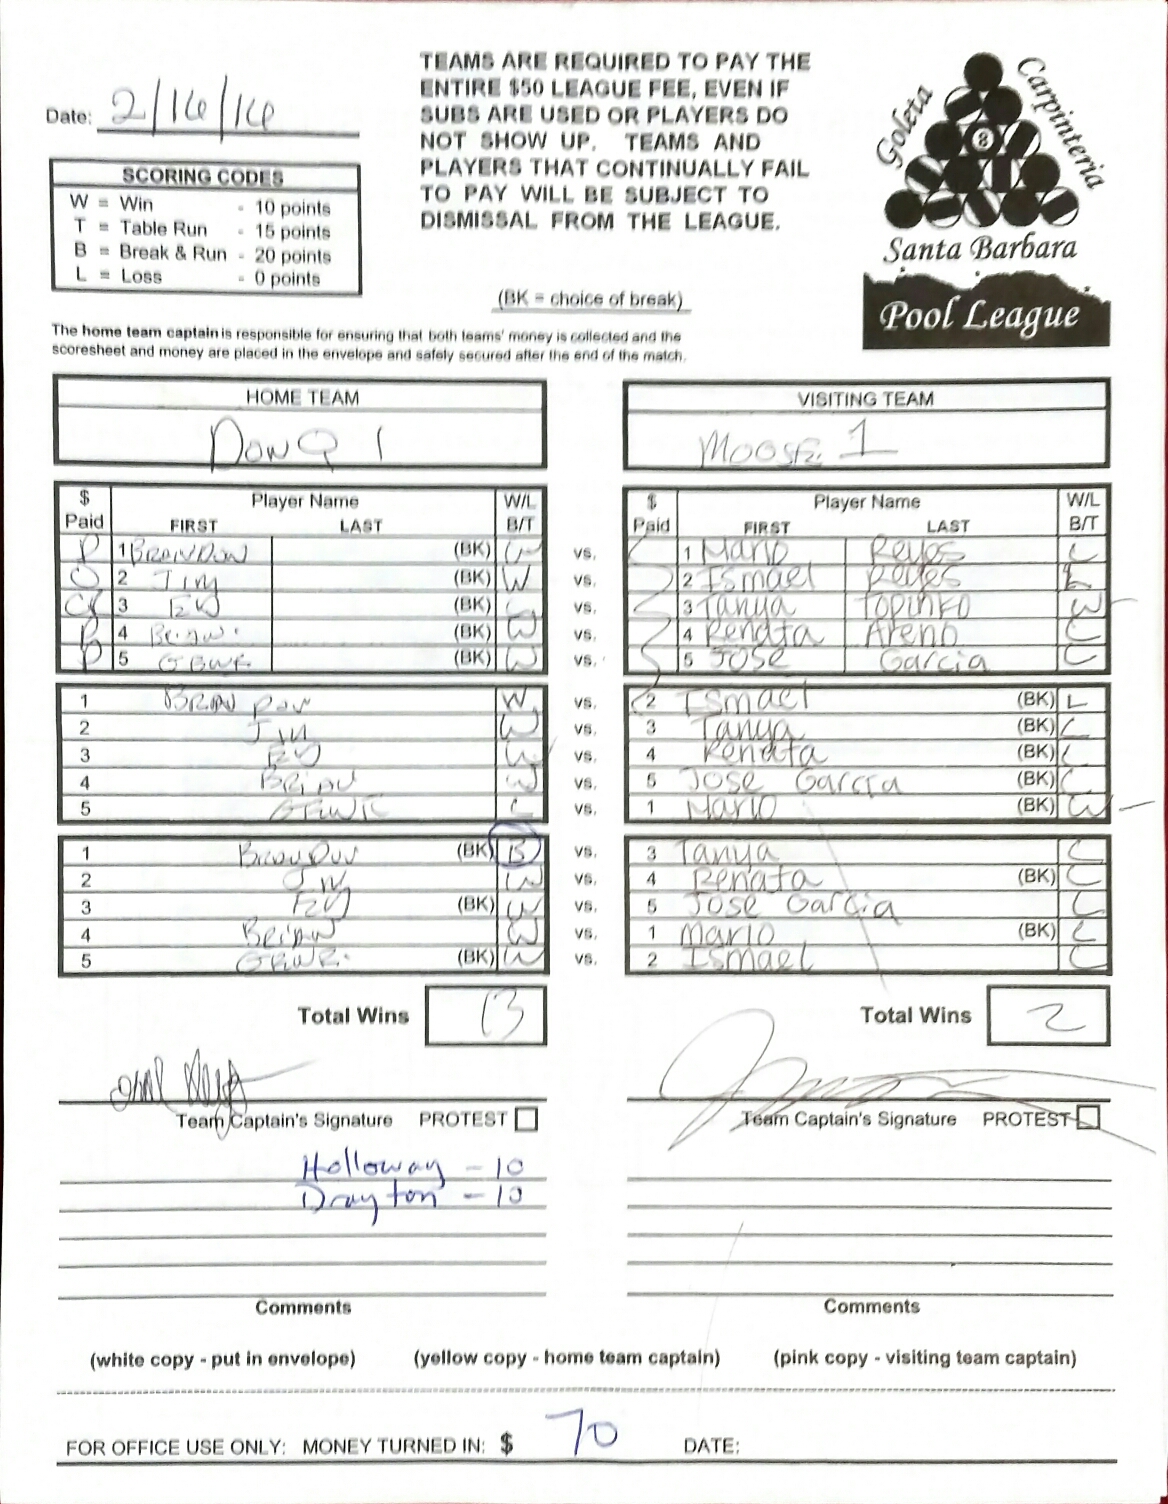 TEAMS ARE REQUIRED TO PAY THE
ENTIRE $50 LEAGUE FEE, EVEN IF
SUBS ARE USED OR PLAYERS DO
NOT SHOW UP. TEAMS AND
PLAYERS THAT CONTINUALLY FAIL
TO PAY WILL BE SUBJECT TO
DISMISSAL FROM THE LEAGUE.
Goleta
Carpinteria
8
Santa Barbara
Pool League
Date: 2/16/16
SCORING CODES
W = Win - 10 points
T = Table Run - 15 points
B = Break & Run - 20 points
L = Loss - 0 points
(BK = choice of break)
The home team captain is responsible for ensuring that both teams' money is collected and the
scoresheet and money are placed in the envelope and safely secured after the end of the match.
HOME TEAM VISITING TEAM
DonQ 1 Moose 1
$ Paid Player Name FIRST LAST W/L B/T $ Paid Player Name FIRST LAST W/L B/T
P 1 BRANDON (BK) vs. 1 Mario Reyes L
2 Jim (BK) W vs. 2 Ismael Reyes L
3 (BK) L vs. 3 Tanya Topinko W
P 4 Brian (BK) W vs. 4 Renata Areno L
P 5 (BK) W vs. 5 Jose Garcia L
1 BRANDON W vs. 2 Ismael (BK) L
2 Jim W vs. 3 Tanya (BK) L
3 W vs. 4 Renata (BK) L
4 BRIAN W vs. 5 Jose Garcia (BK) L
5 L vs. 1 Mario (BK) W
1 Brandon (BK) B vs. 3 Tanya L
2 Jim W vs. 4 Renata (BK) L
3 (BK) W vs. 5 Jose Garcia L
4 Brian W vs. 1 Mario (BK) L
5 (BK) W vs. 2 Ismael L
Total Wins 13 Total Wins 2
Team Captain's Signature PROTEST Team Captain's Signature PROTEST
Holloway - 10
Drayton - 10
Comments Comments
(white copy - put in envelope) (yellow copy - home team captain) (pink copy - visiting team captain)
FOR OFFICE USE ONLY: MONEY TURNED IN: $ 70 DATE: